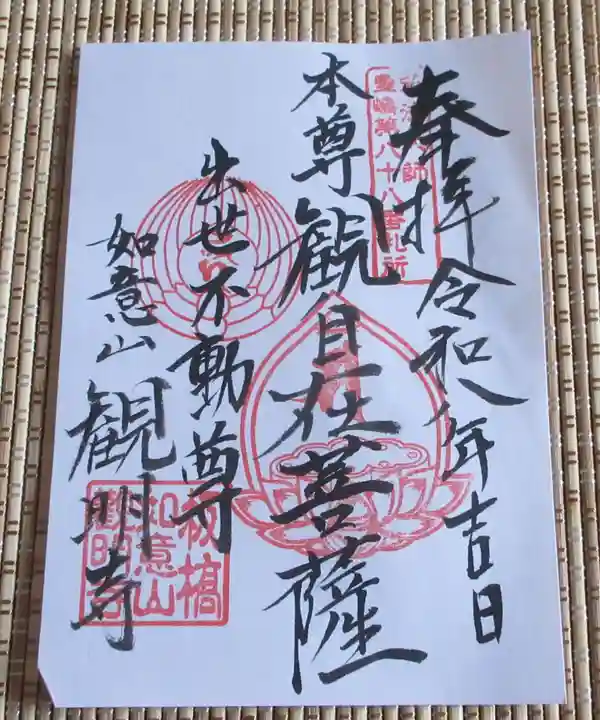 奉拝 令和八年吉日
豊嶋第八十八番札所
本尊 観自在菩薩
出世不動尊
如意山 観明寺
板橋
如意山
観明寺